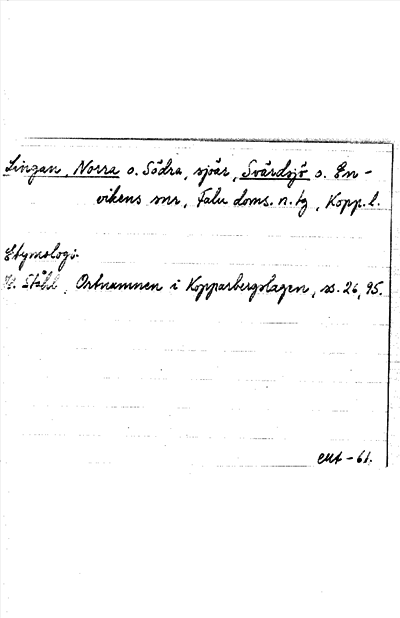 Lingan, Norra o. Södra, sjöar, Svärdsjö o. En-
vikens snr, Falu doms. n. tg, Kopp. l.
Etymologi:
H. Ståhl, Ortnamnen i Kopparbergslagen, ss. 26, 95.
-61.